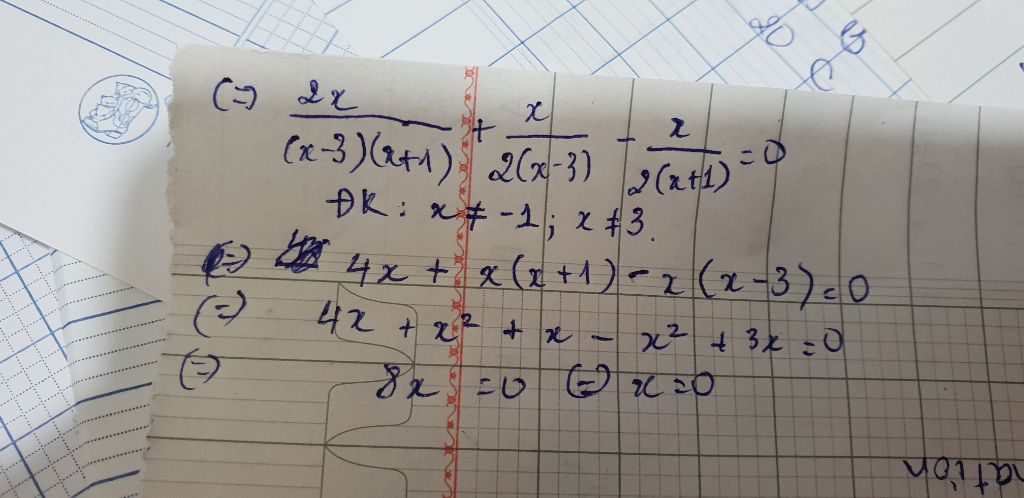 (=) 2x/((x-3)(x+1)) + x/(2(x-3)) - x/(2(x+1)) = 0
ĐK: x ≠ -1; x ≠ 3.
(=) 4x + x(x+1) - x(x-3) = 0
(=) 4x + x² + x - x² + 3x = 0
(=) 8x = 0 (=) x = 0